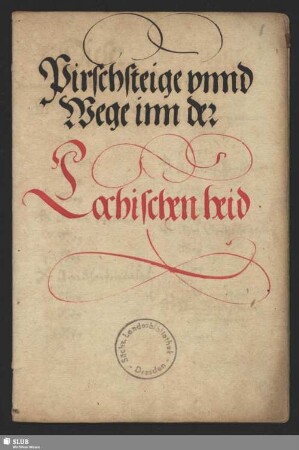 1
Pirschsteige vnnd
Wege inn der
Lochischen heid
Sächs. Landesbibliothek
- Dresden -
SLUB
Wir führen Wissen.